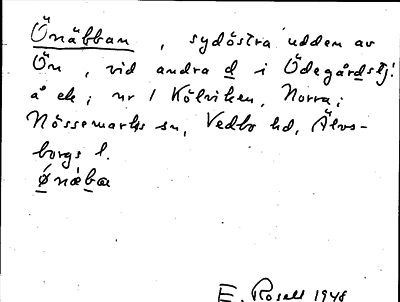 Önäbban, sydöstra udden av
Ön, vid andra d i Ödegårdstj!
å ek; nr 1 Kölviken, Norra;
Nössemarks sn, Vedbo hd, Älvs-
borgs l.
ǿnàba
E. Rosell 1948